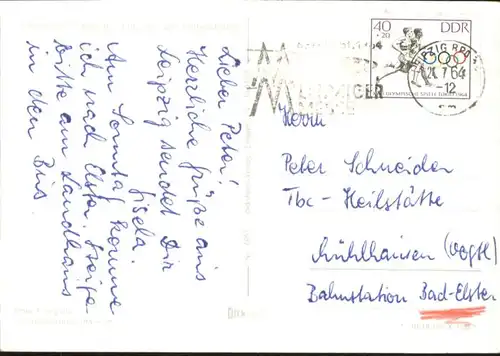 Lieber Peter!
Herzliche Grüße aus
Leipzig sendet Dir
Gisela.
Am Sonntag komme
ich nach Elster. Steige
bitte am Landhaus
in den Bus.
40
+20
DDR
LEIPZIG BPA
21.7.64
-12
LEIPZIGER
MESSE
Herrn
Peter Schneider
Tbc-Heilstätte
Mühlhausen (Vogtl)
Bahnstation Bad-Elster